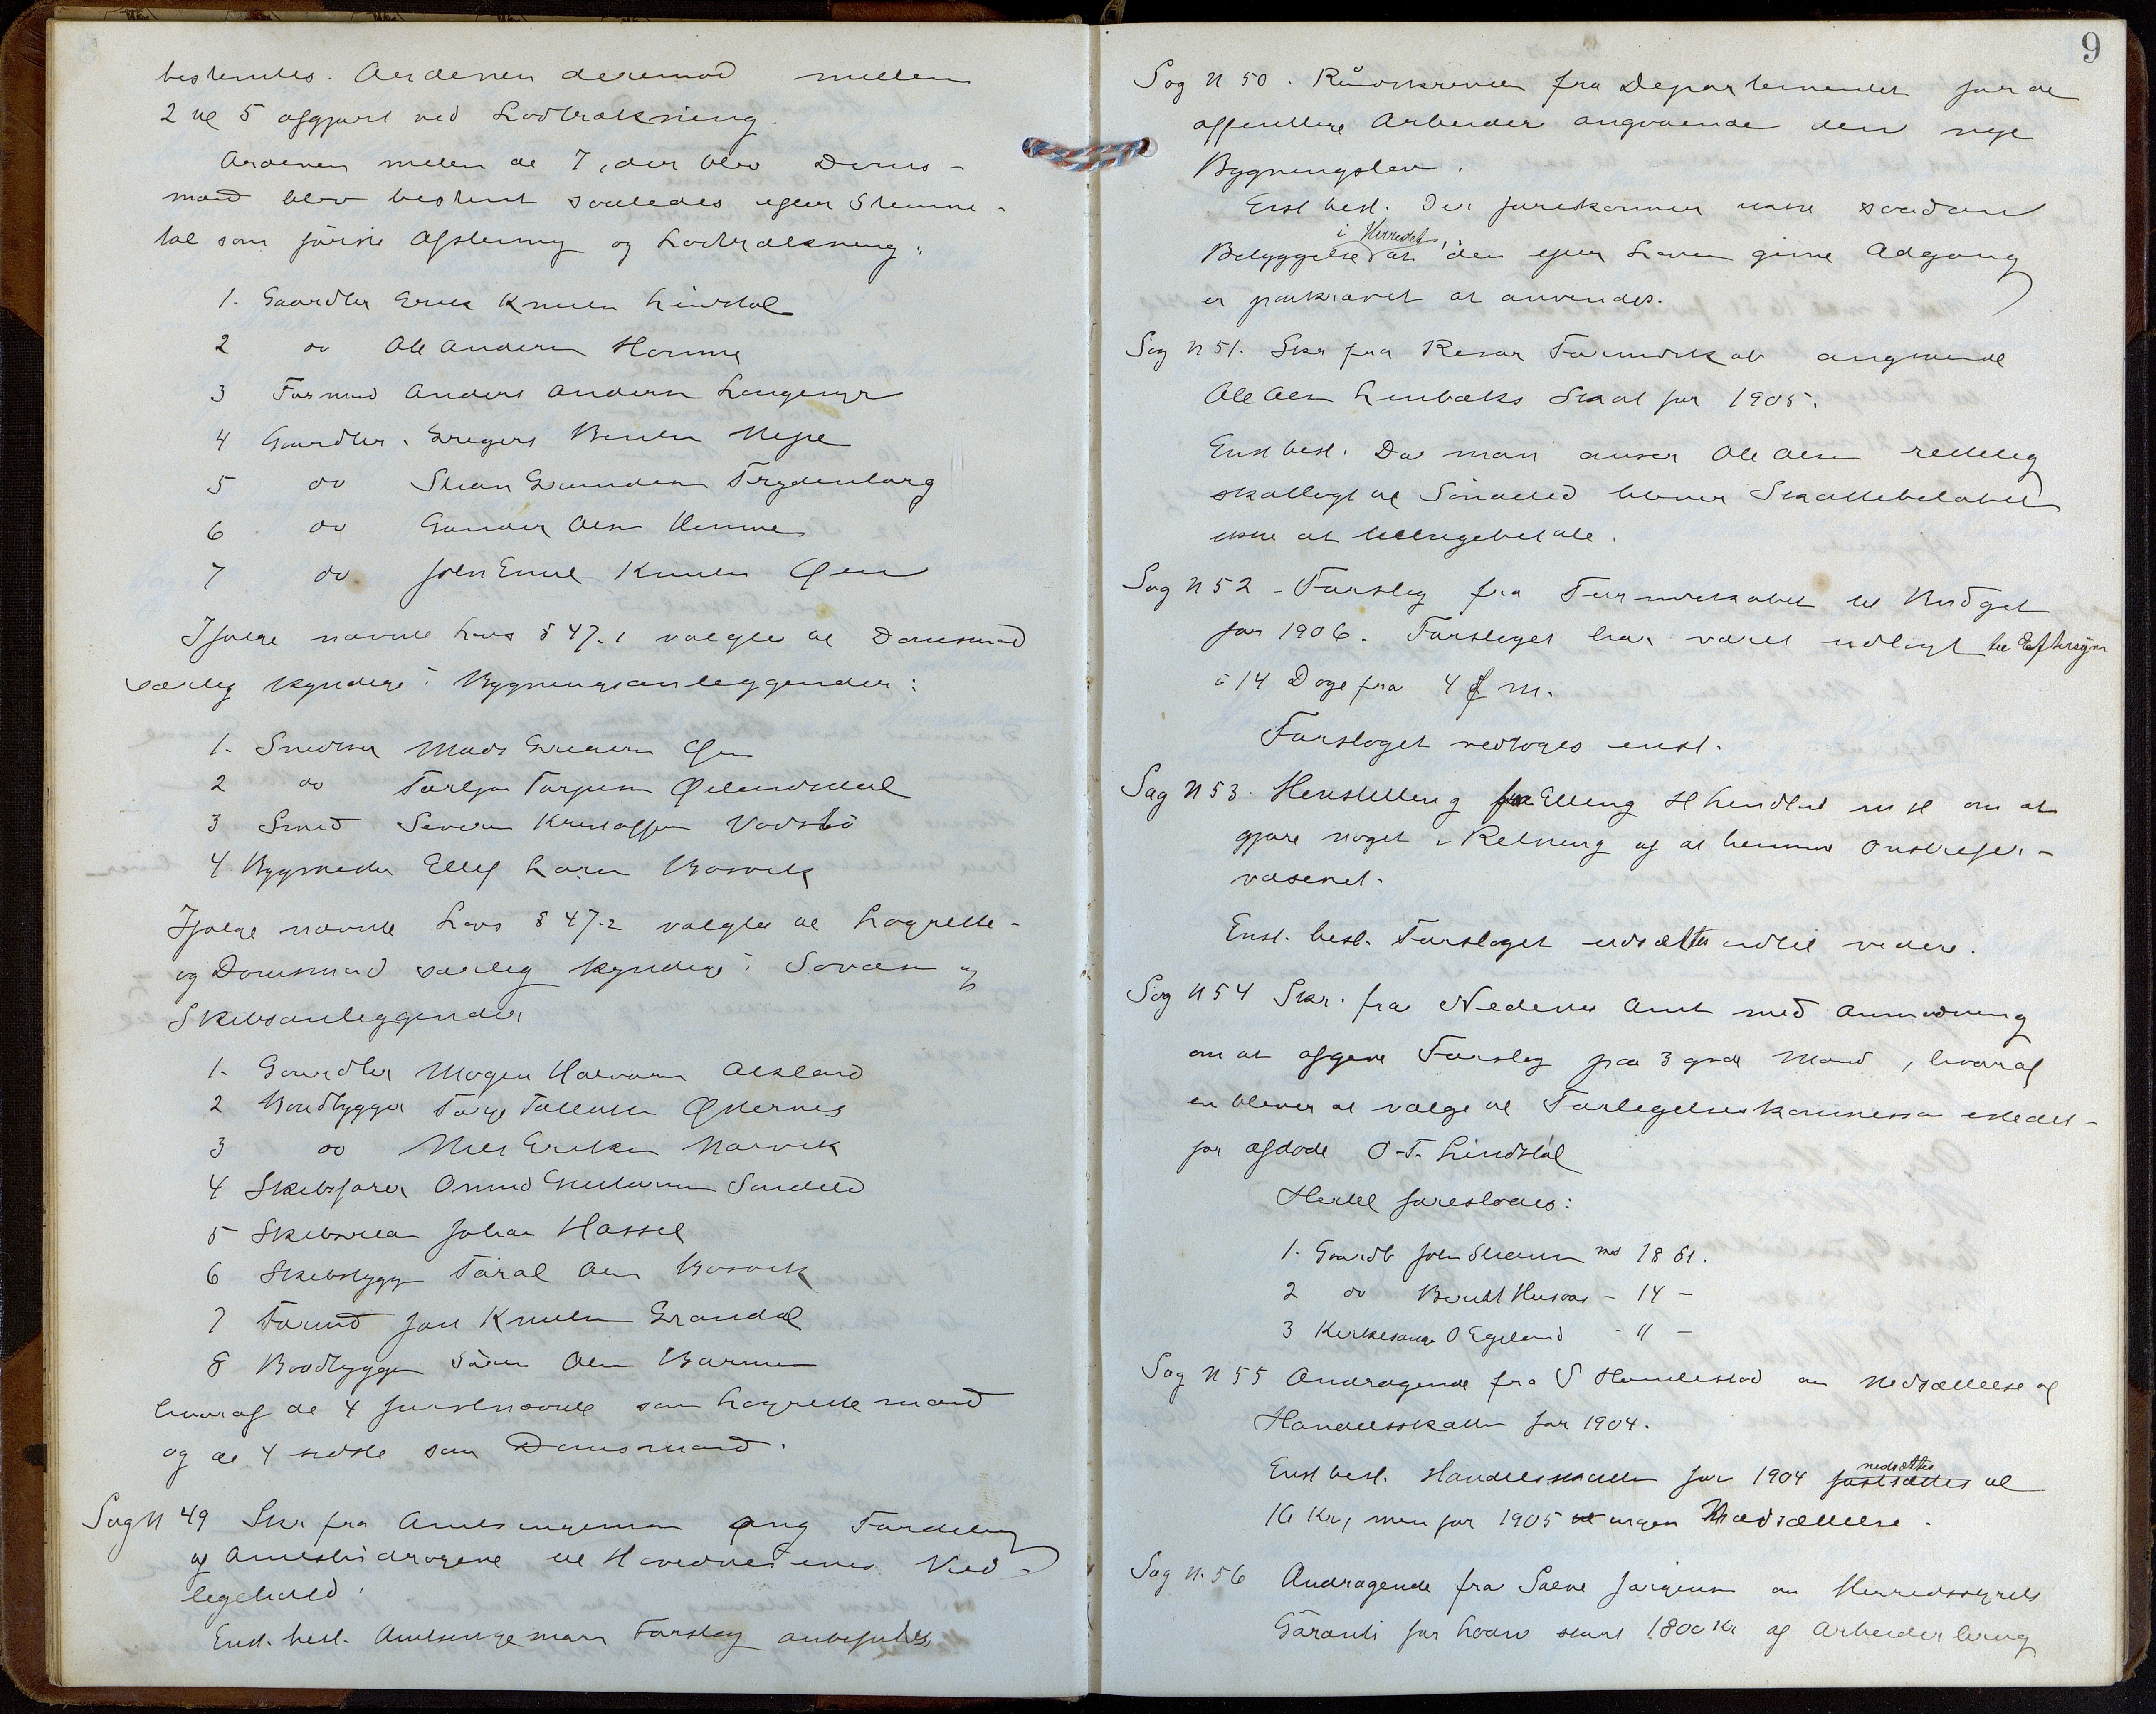 bestemtes. Ordenen deremod mellem
2 til 5 afgjort ved Lodtrækning.
Ordenen mellem de 7, der blev Doms-
mænd blev bestemt saaledes efter Stemme-
tal som förste Afstemning og Lodtrækning:
1. Gaardbr Erik Knutsen Lindstøl
2 do Ole Andersen Homme
3 Formand Anders Andersen Langemyr
4 Gaardbr. Gregers Bentsen
5 do Stian Gundersen Frydenborg
6 do Gunder Olsen
7 do John Emil Knutsen Øen
Ifølge nævnte Lovs § 47.1 valgtes til Domsmænd
særlig kyndige i Bygningsanliggender:
1. Snedker Mads Øen
2 do Torbjørn Torjusen
3 Smed Severin Kristoffersen
4 Bygmester Ellef Larsen Bosvik
Ifølge nævnte Lovs § 47.2 valgtes til Lagrette-
og Domsmænd særlig kyndige i Sövæsen og
Skibsanliggender
1. Gaardbr Mogens Halvorsen
2 Baadbygger Terje Tallaksen Østernes
3 do Nils Eriksen Narvik
4 Skibsfører Sundeled
5 Skibsreder Johan Hassel
6 Skibsbygger Taral Olsen Bosvik
7 Formd Jon Knutsen Grandal
8 Baadbygger Sören Olsen Barmen
hvoraf de 4 førstnævnte som Lagrettemænd
og de 4 sidste som Domsmænd.
Sag N 49 Skr fra Amtsingeniøren ang Fordeling
af Amtsbidragene til Hovedveienes Ved-
ligehold.
Enst. besl. Amtsingeniørens Forslag anbefales
9
Sag N 50. Rundskrivelse fra Departementet for de
offentlige Arbeider angaaende den nye
Bygningslov.
Enst besl. Der forekommer ikke saadan
i Herredet,
Bebyggelse at den efter Loven givne Adgang
er paakrævet at anvendes.
Sag N 51. Skr fra Risør Formandskab angaaende
Ole Olsen Lindbæks Skat for 1905.
Enst besl. Da man anser Ole Olsen rettelig
skatlagt til Söndeled bliver Skattebeløbet
ikke at tilbagebetale.
Sag N 52 - Forslag fra Formandskabet til Budget
for 1906. Forslaget har været udlagt til Eftersyn
i 14 Dage fra 4 f M.
Forslaget vedtoges enst.
Sag N 53. Henstilling fra Elling H Lindland m fl om at
gjøre noget i Retning af at hemme Omstreifer-
væsenet.
Enst. besl. Forslaget udsættes indtil videre.
Sag N 54 Skr. fra Nedenes Amt med Anmodning
om at afgive Forslag paa 3 gode Mænd, hvoraf
en bliver at vælge til Forligelseskommissær istedet-
for afdøde O. T. Lindstöl
Hertil foresloges:
1. Gaardb John Stiansen md 18 St.
2 do Berulf Husaas - 14 -
3 Kirkesanger O Egeland - 11 -
Sag N 55 Andragende fra S Hamlestad om Nedsættelse af
Handelsskatten for 1904.
nedsættes
Enst besl. Handelsskatten for 1904 fastsættes til
16 Kr, men for 1905 ingen Nedsættelse.
Sag N. 56 Andragende fra Salve Jørgensen om Herredsstyrets
Garanti for Laan stort 1800 Kr af Arbeiderbrug